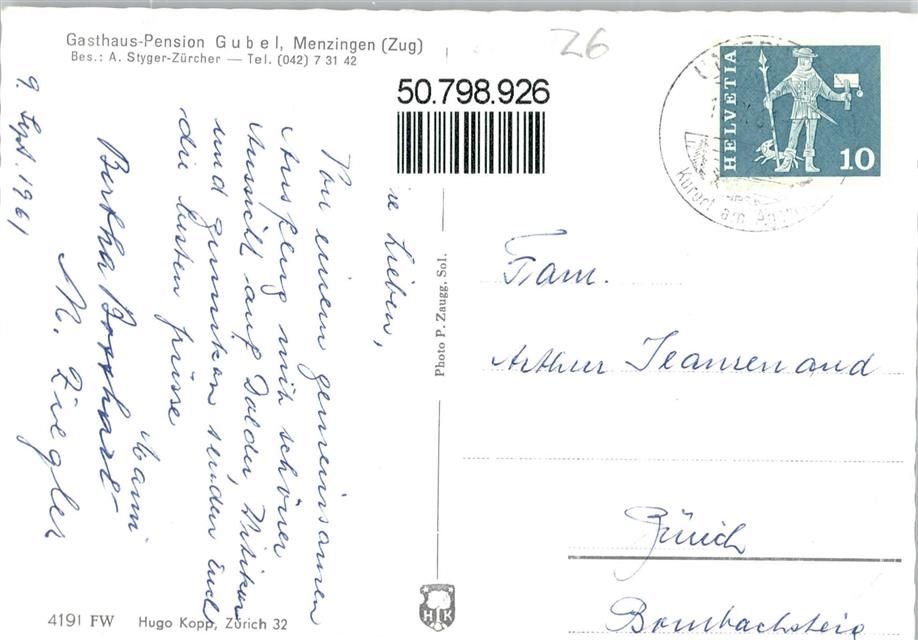 Gasthaus-Pension Gubel, Menzingen (Zug)
Bes.: A. Styger-Zürcher — Tel. (042) 7 31 42
26
50.798.926
HELVETIA
10
Kurort am
9. Sept. 1961
Lieben,
Von einem gemeinsamen
Ausflug mit schöner
Aussicht auf Dolder, Witikon
und Zumikon senden Euch
die besten Grüsse
Mami
Bertha
M. Ziegler
Photo P. Zaugg, Sol.
Fam.
Arthur
Zürich
Bombachsteig
HK
4191 FW Hugo Kopp, Zürich 32